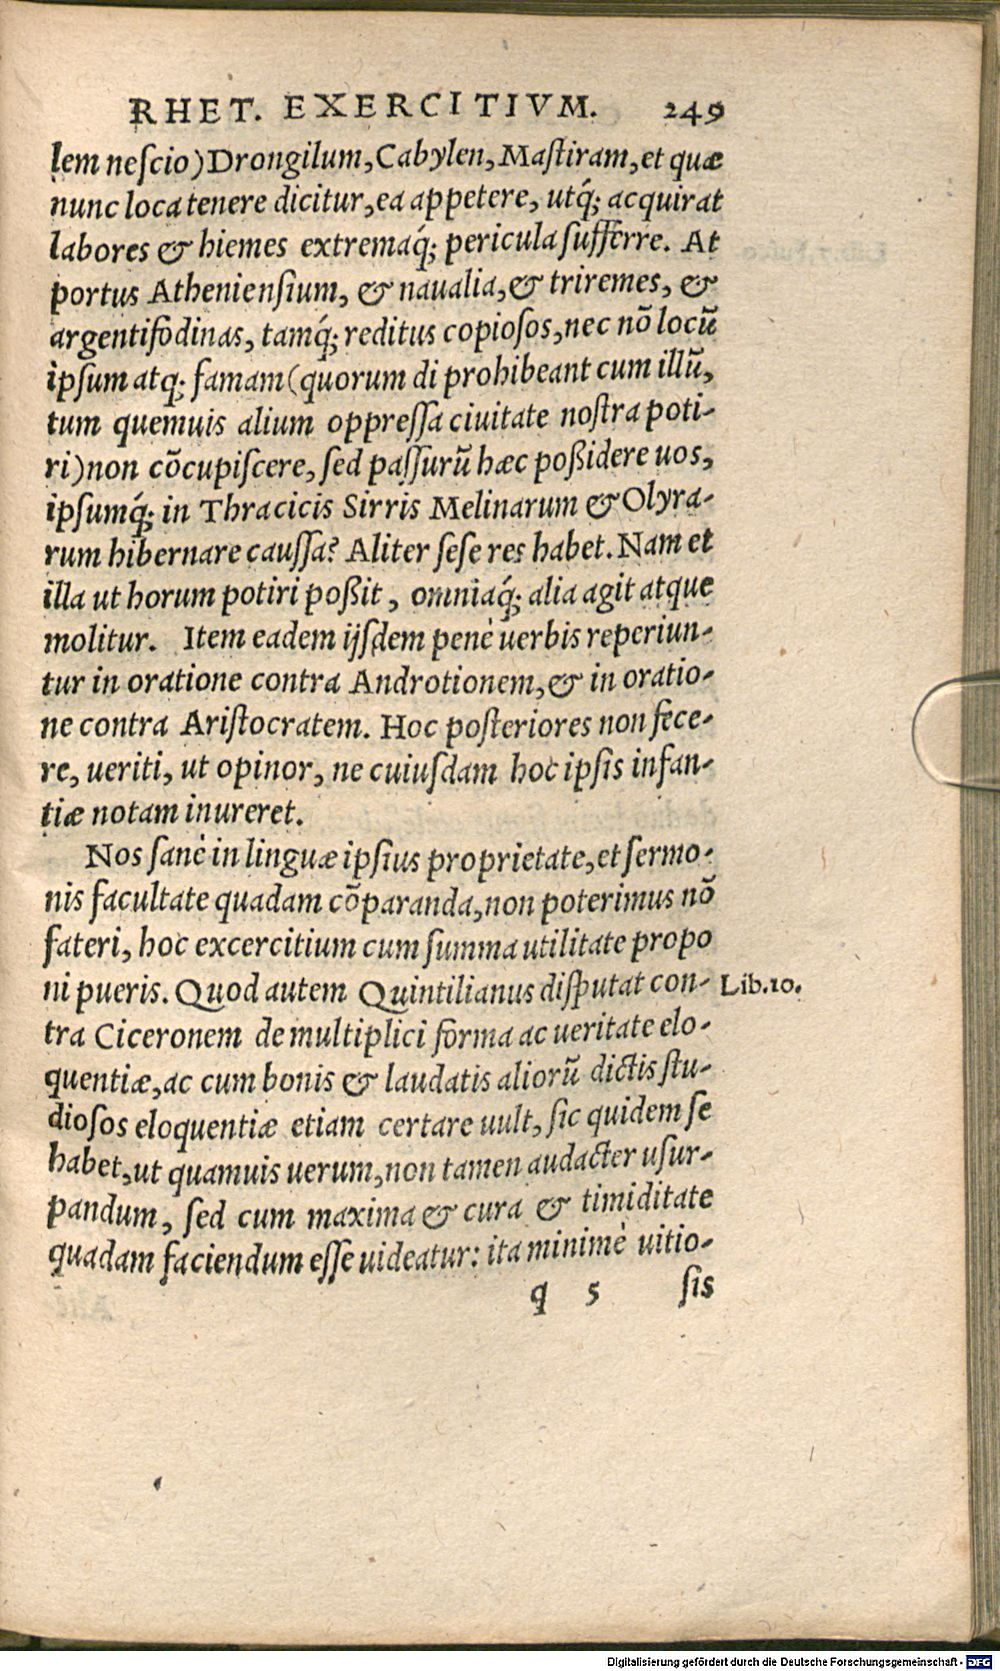 RHET. EXERCITIVM. 249
lem neſcio) Drongilum, Cabylen, Maſtiram, et quæ
nunc loca tenere dicitur, ea appetere, utq́; acquirat
labores & hiemes extremaq́; pericula ſufferre. At
portus Athenienſium, & naualia, & triremes, &
argentifodinas, tamq́; reditus copioſos, nec nō locū
ipſum atq; famam (quorum di prohibeant cum illū,
tum quemuis alium oppreſſa ciuitate noſtra poti-
ri) non cōcupiſcere, ſed paſſurū hæc poßidere uos,
ipſumq́; in Thracicis Sirris Melinarum & Olyra-
rum hibernare cauſſa? Aliter ſeſe res habet. Nam et
illa ut horum potiri poßit, omniaq́; alia agit atque
molitur. Item eadem ijſdem penè uerbis reperiun-
tur in oratione contra Androtionem, & in oratio-
ne contra Ariſtocratem. Hoc poſteriores non fece-
re, ueriti, ut opinor, ne cuiuſdam hoc ipſis infan-
tiæ notam inureret.
Nos ſanè in linguæ ipſius proprietate, et ſermo-
nis facultate quadam cōparanda, non poterimus nō
fateri, hoc excercitium cum ſumma utilitate propo
ni pueris. Quod autem Quintilianus diſputat con-
Lib.10.
tra Ciceronem de multiplici forma ac ueritate elo-
quentiæ, ac cum bonis & laudatis aliorū dictis ſtu-
dioſos eloquentiæ etiam certare uult, ſic quidem ſe
habet, ut quamuis uerum, non tamen audacter uſur-
pandum, ſed cum maxima & cura & timiditate
quadam faciendum eſſe uideatur: ita minimè uitio-
q 5 ſis
Digitalisierung gefördert durch die Deutsche Forschungsgemeinschaft - DFG